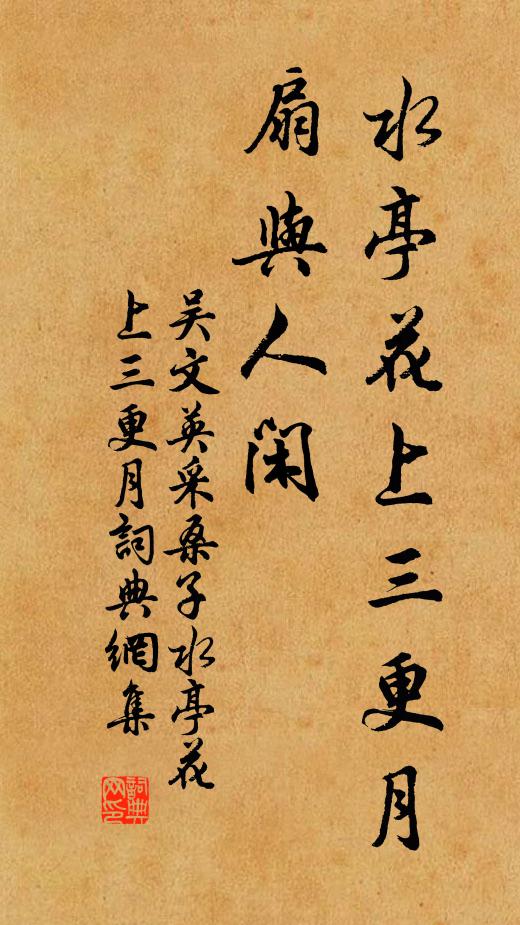 水亭花上三更月
扇與人閑
吴文英采桑子水亭花
上三更月詞典網集
詞典
网印